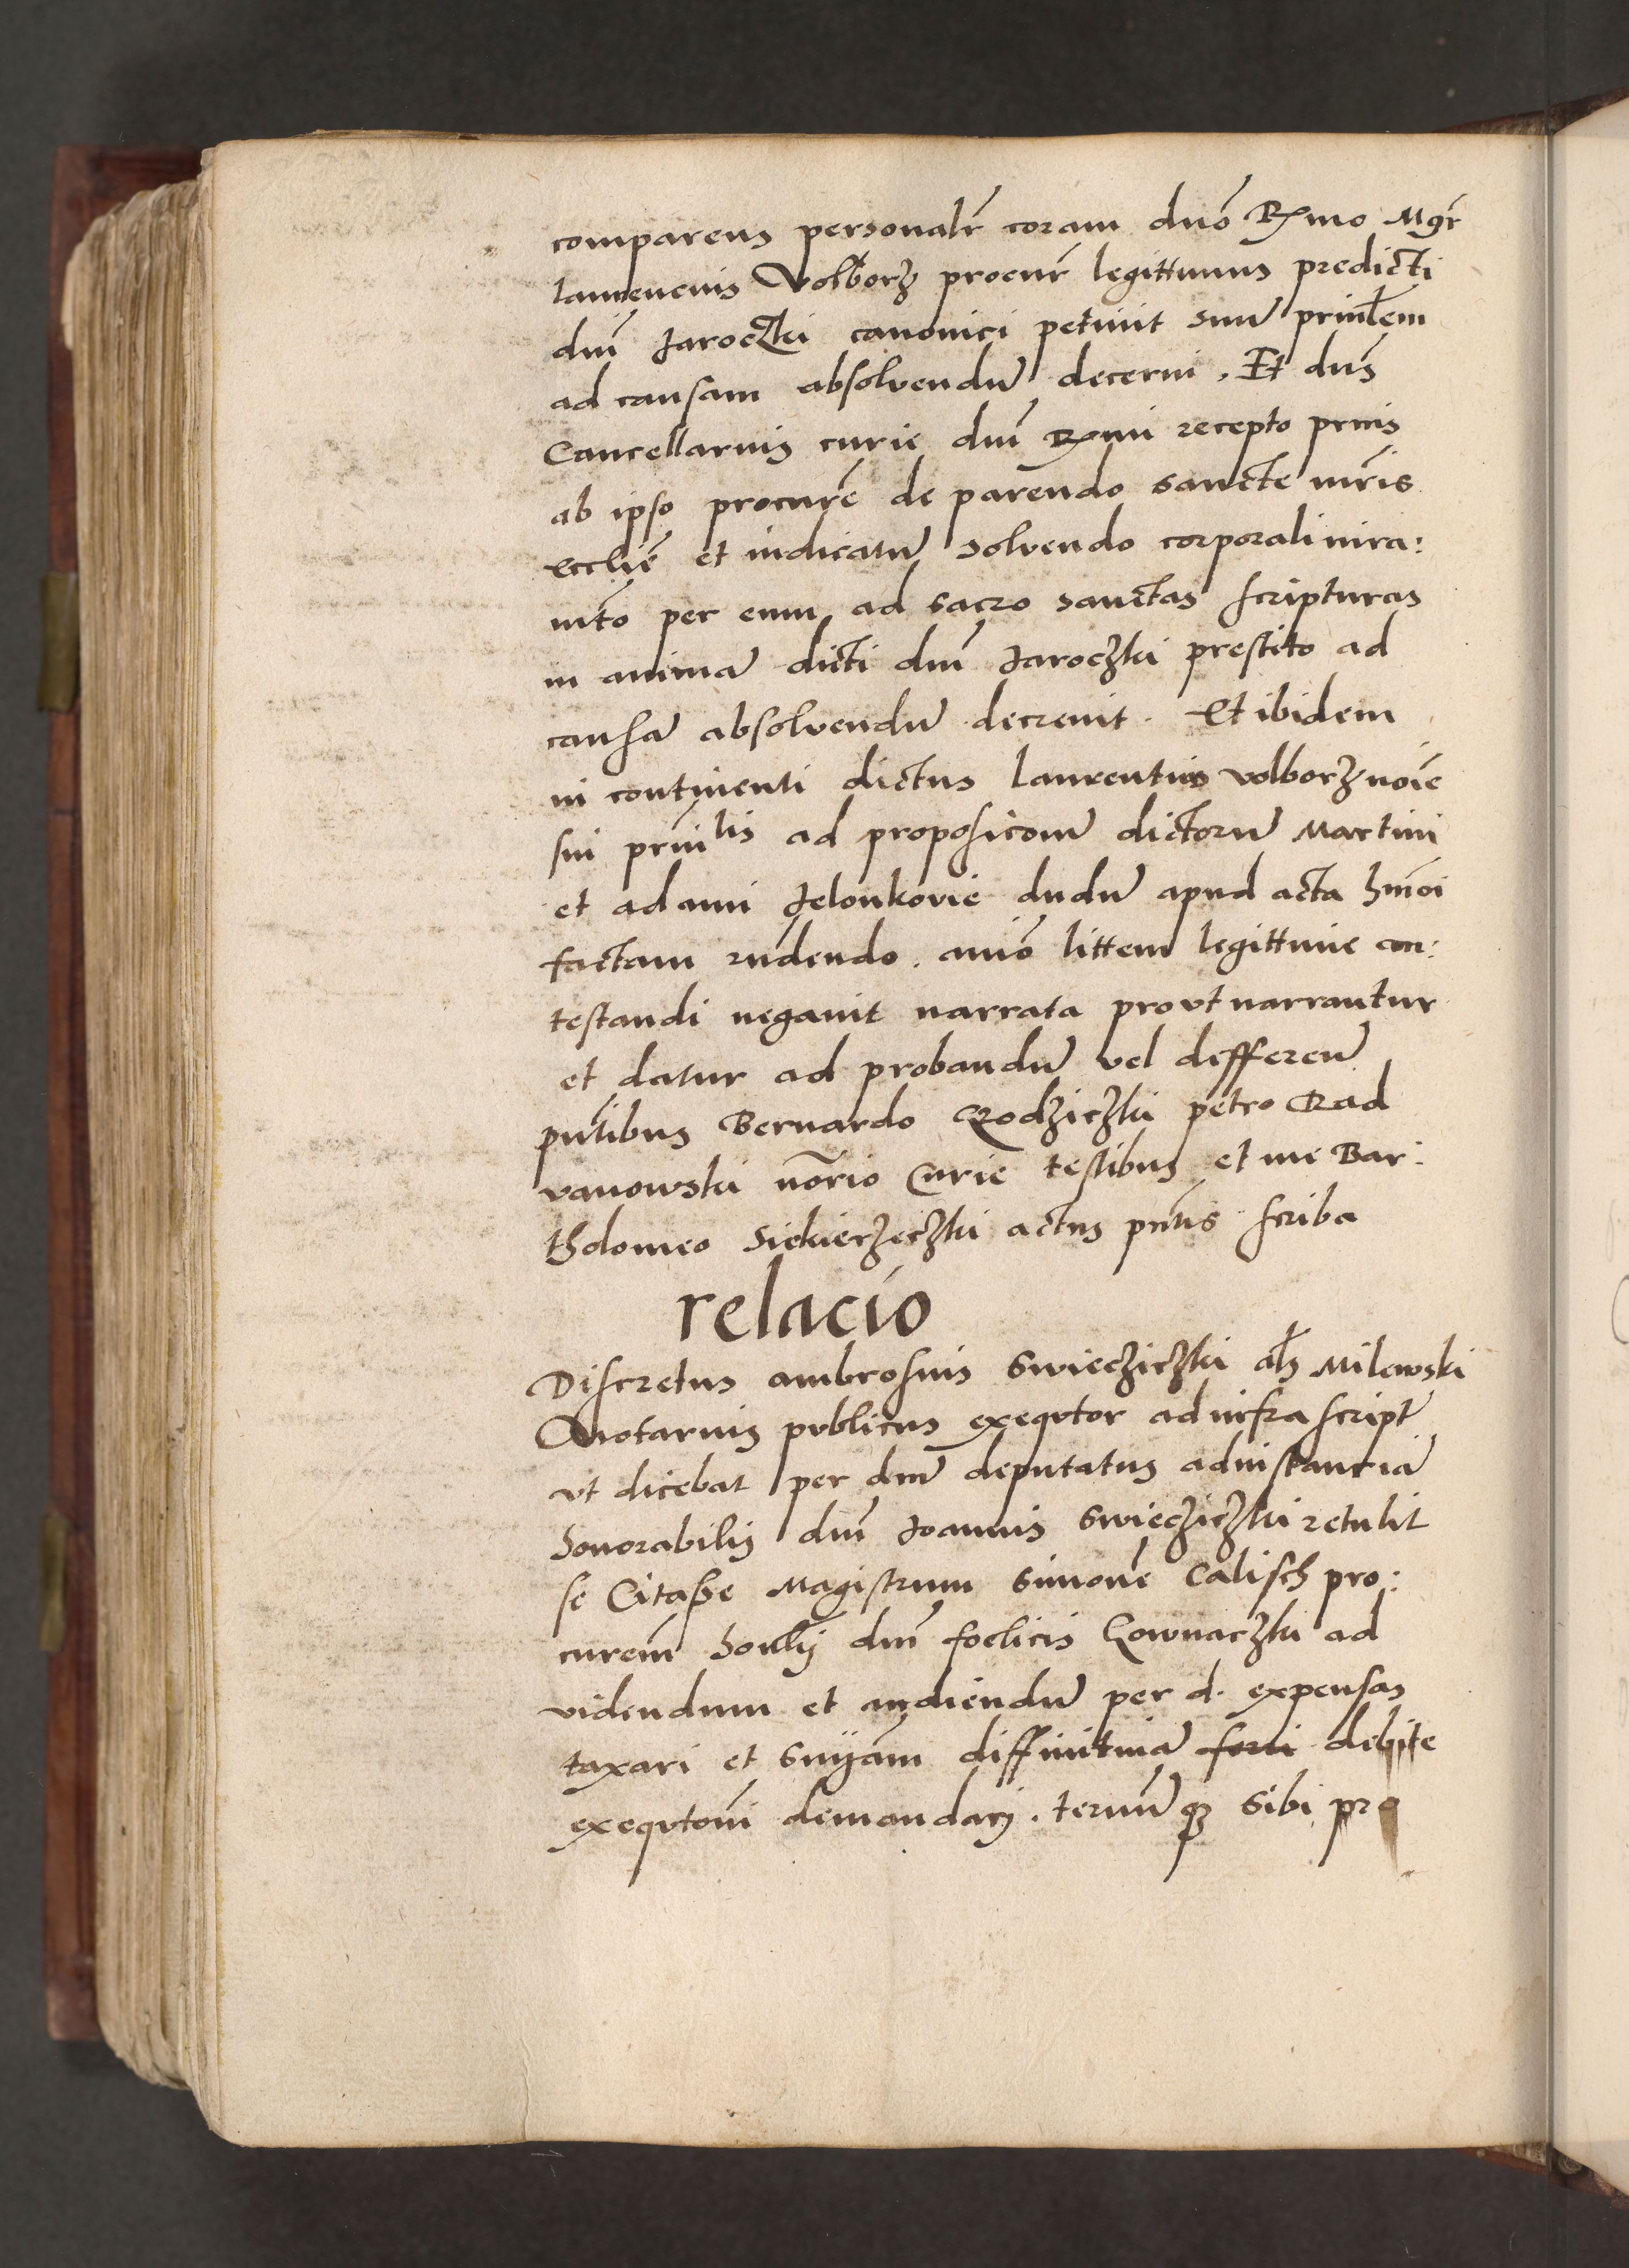 comparens personalr̃ coram dño R̃mo Mgr̃
laurencius Volborz procur̃ legittimus predicti
dñi Jaroczki canonici petiuit suũ prinłem
ad causam absolvendũ decerni. Et dñs
Cancellarius curie dñi R̃mi recepto prius
ab ipso procurẽ de parendo sancte mr̃is
Ecclĩe et iudicatũ solvendo corporali iura:
mẽto per eum ad sacro sanctas scripturas
in animã dicti dñi Jaroczki prestito ad
causã absolvendũ decreuit. Et ibidem
in continenti dictus laurentius volborz noĩe
sui prinlis ad proposicom̃ dictorũ Martini
et adami Jelonkovie dudũ apud acta hmõi
factam rñdendo. aniõ littem legittime con:
testandi negauit narrata prout narrantur
et datur ad probandũ vel differeñ
pñtibus Bernardo Rodziczki petro Rad
vanowski nõrio Curie testibus et me Bar:
tholomeo Siekierzeczki actus pñtis scriba
relacio
Discretus ambrosius Swiecziczki als Milewski
Notarius publicus exequtor ad infra script̃
vt dicebat per dnũ deputatus ad instanciã
honorabilis dñi Joannis Swiecziczki retulit
se Citasse Magistrum Simonẽ Calisch pro:
curem̃ honlis dñi foelicis Gownaczki ad
videndum et audiendũ per d. expensas
taxari et snỹam diffinitiuã feri debite
exequtoni demandari. termũ qz sibi pro